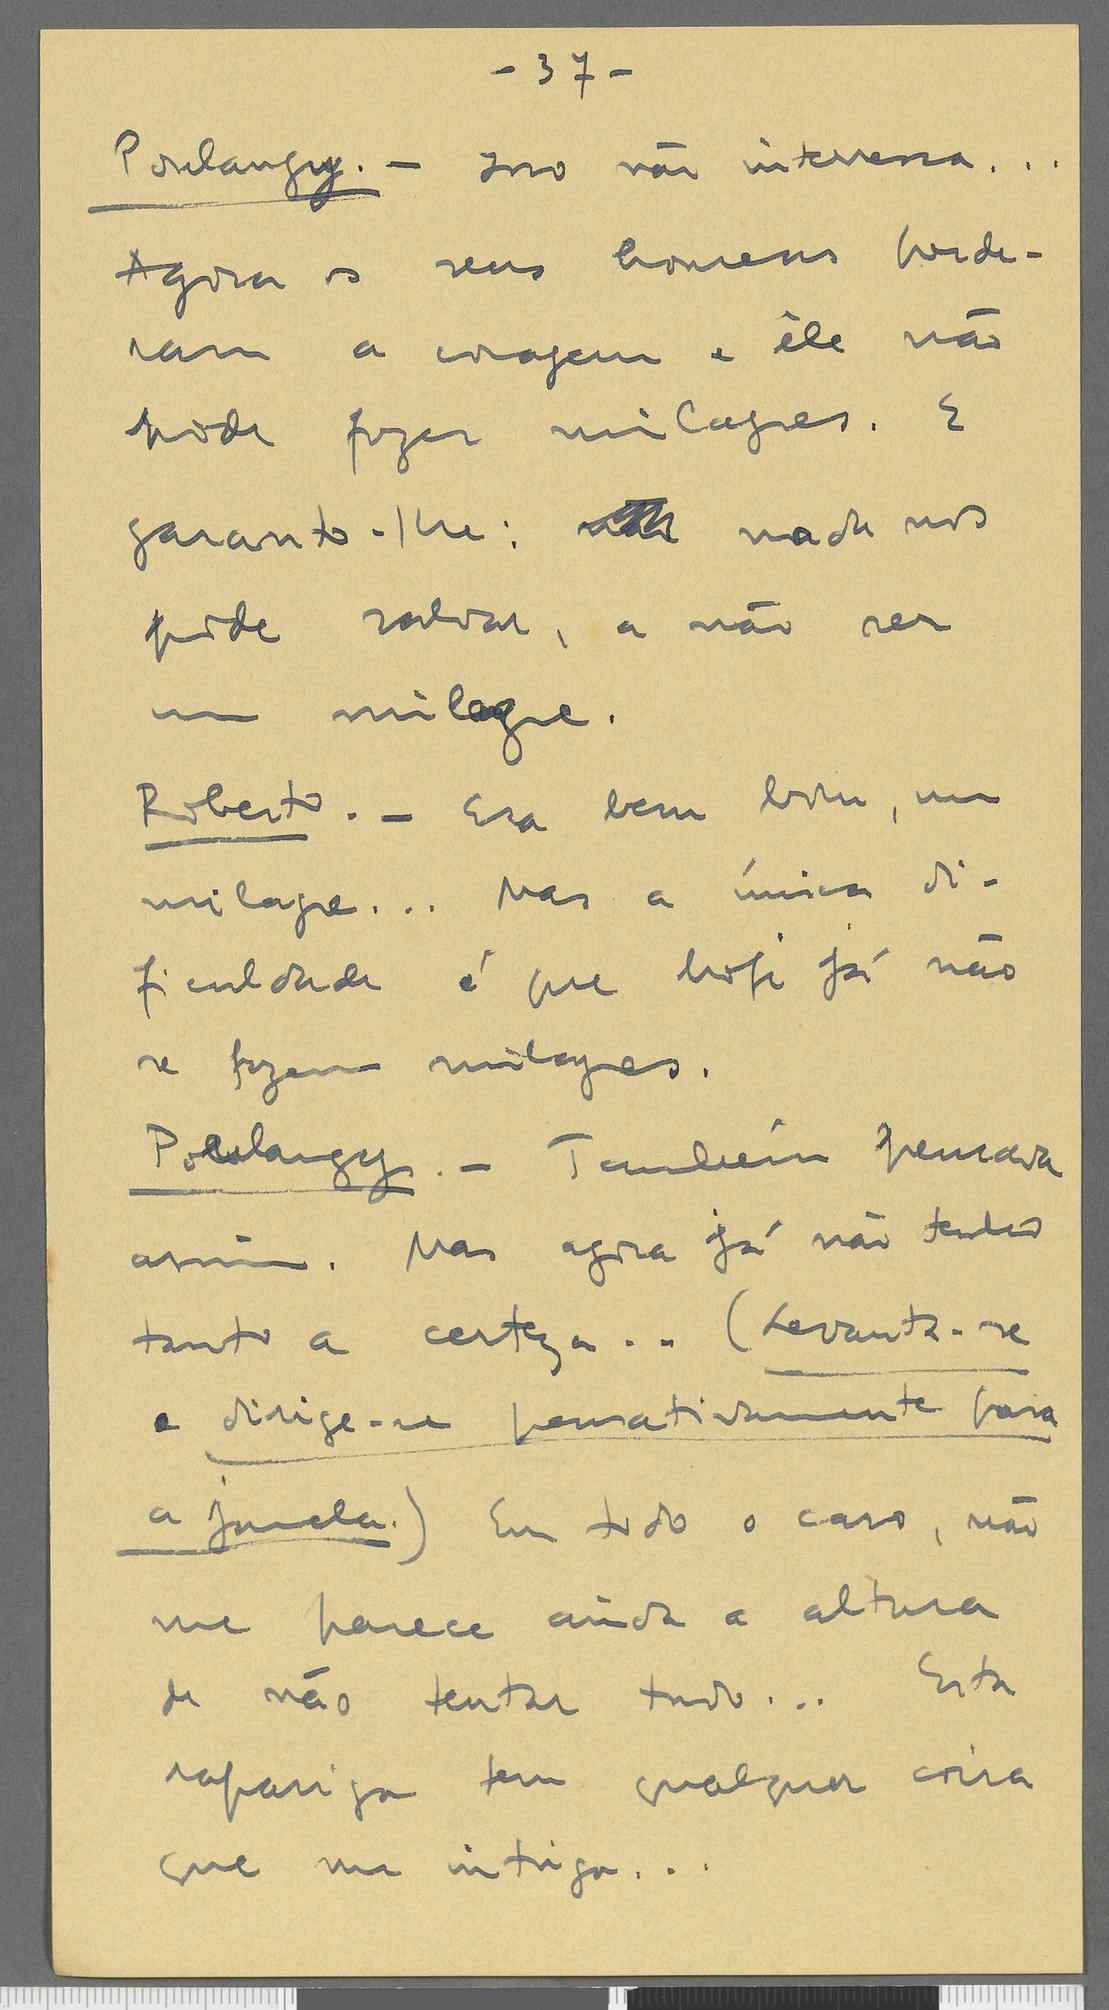 - 37 -
Poulangy. - Isso não interessa...
Agora os seus homens perde-
ram a coragem e êle não
pode fazer milagres. E
garanto-lhe: nada nos
pode salvar, a não ser
um milagre.
Roberto. - Era bem bom, um
milagre... Mas a única di-
ficuldade é que hoje já não
se fazem milagres.
Poulangy. - Também pensava
assim. Mas agora já não tenho
tanto a certeza... (Levanta-se
e dirige-se pensativamente para
a janela.) Em todo o caso, não
me parece ainda a altura
de não tentar tudo... Esta
rapariga tem qualquer coisa
que me intriga...